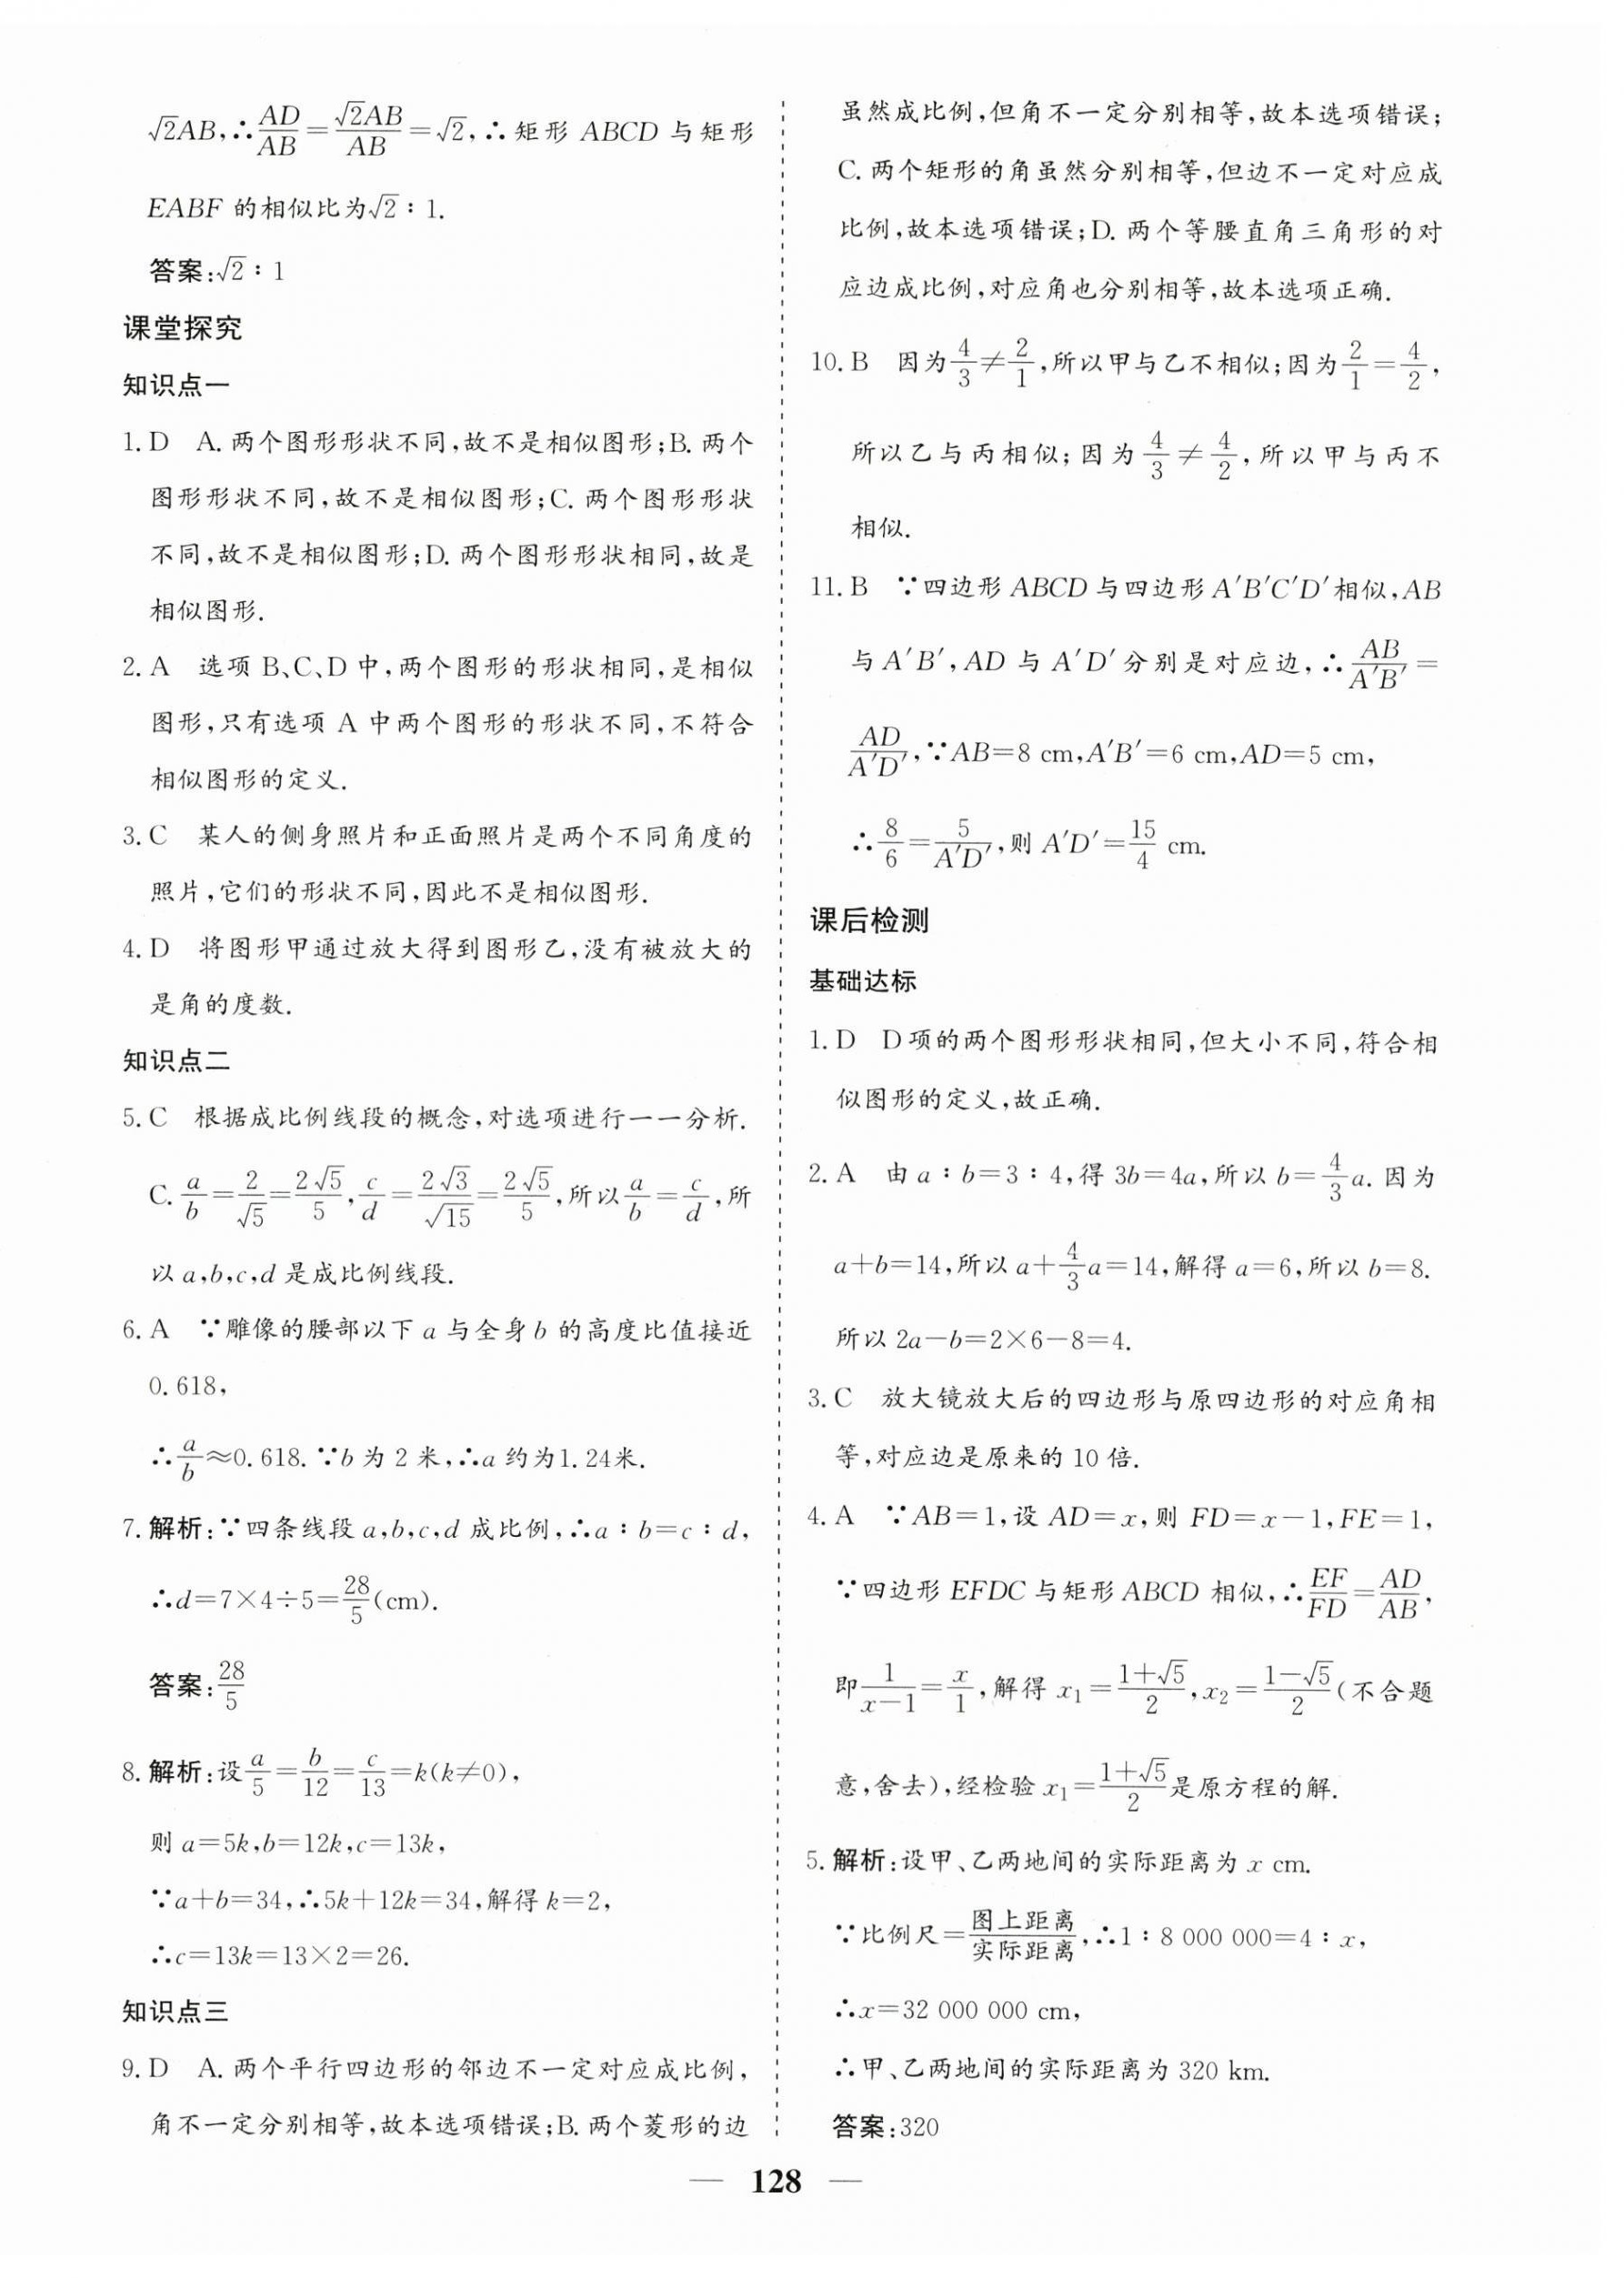 √2AB,∴AD/AB=√2AB/AB=√2,∴矩形 ABCD 与矩形
EABF 的相似比为√2∶1.
答案:√2∶1
课堂探究
知识点一
1. D　A. 两个图形形状不同,故不是相似图形;B. 两个
图形形状不同,故不是相似图形;C. 两个图形形状
不同,故不是相似图形;D. 两个图形形状相同,故是
相似图形.
2. A　选项 B、C、D 中,两个图形的形状相同,是相似
图形,只有选项 A 中两个图形的形状不同,不符合
相似图形的定义.
3. C　某人的侧身照片和正面照片是两个不同角度的
照片,它们的形状不同,因此不是相似图形.
4. D　将图形甲通过放大得到图形乙,没有被放大的
是角的度数.
知识点二
5. C　根据成比例线段的概念,对选项进行一一分析.
C. a/b=2/√5=2√5/5,c/d=2√3/√15=2√5/5,所以a/b=c/d,所
以 a,b,c,d 是成比例线段.
6. A　∵雕像的腰部以下 a 与全身 b 的高度比值接近
0.618,
∴a/b≈0.618.∵b 为 2 米,∴a 约为1.24米.
7. 解析:∵四条线段 a,b,c,d 成比例,∴a∶b=c∶d,
∴d=7×4÷5=28/5(cm).
答案:28/5
8. 解析:设a/5=b/12=c/13=k(k≠0),
则 a=5k,b=12k,c=13k,
∵a+b=34,∴5k+12k=34,解得 k=2,
∴c=13k=13×2=26.
知识点三
9. D　A. 两个平行四边形的邻边不一定对应成比例,
角不一定分别相等,故本选项错误;B. 两个菱形的边
虽然成比例,但角不一定分别相等,故本选项错误;
C. 两个矩形的角虽然分别相等,但边不一定对应成
比例,故本选项错误;D. 两个等腰直角三角形的对
应边成比例,对应角也分别相等,故本选项正确.
10. B　因为4/3≠2/1,所以甲与乙不相似;因为2/1=4/2,
所以乙与丙相似;因为4/3≠4/2,所以甲与丙不
相似.
11. B　∵四边形 ABCD 与四边形 A′B′C′D′相似,AB
与 A′B′,AD 与 A′D′分别是对应边,∴AB/A′B′=
AD/A′D′,∵AB=8 cm,A′B′=6 cm,AD=5 cm,
∴8/6=5/A′D′,则 A′D′=15/4 cm.
课后检测
基础达标
1. D　D 项的两个图形形状相同,但大小不同,符合相
似图形的定义,故正确.
2. A　由 a∶b=3∶4,得 3b=4a,所以 b=4/3a. 因为
a+b=14,所以 a+4/3a=14,解得 a=6,所以 b=8.
所以 2a-b=2×6-8=4.
3. C　放大镜放大后的四边形与原四边形的对应角相
等,对应边是原来的 10 倍.
4. A　∵AB=1,设 AD=x,则 FD=x-1,FE=1,
∵四边形 EFDC 与矩形 ABCD 相似,∴EF/FD=AD/AB,
即1/(x-1)=x/1,解得 x₁=(1+√5)/2,x₂=(1-√5)/2(不合题
意,舍去),经检验 x₁=(1+√5)/2是原方程的解.
5. 解析:设甲、乙两地间的实际距离为 x cm.
∵比例尺=图上距离/实际距离,∴1∶8 000 000=4∶x,
∴x=32 000 000 cm,
∴甲、乙两地间的实际距离为 320 km.
答案:320
— 128 —